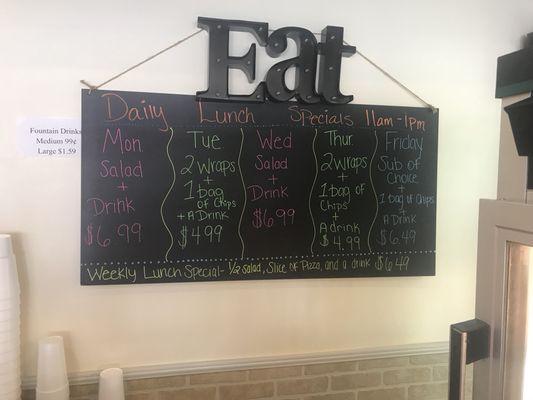 Eat
Daily Lunch Specials 11am-1pm
Fountain Drinks
Medium 99¢
Large $1.59
Mon
Salad
+
Drink
$6.99
Tue
2 Wraps
+
1 bag
of Chips
+ A Drink
$4.99
Wed
Salad
+
Drink
$6.99
Thur.
2 wraps
+
1 bag of
Chips
+
A drink
$4.99
Friday
Sub of
Choice
+
1 Bag of Chips
+
A Drink
$6.49
Weekly Lunch Special- 1/2 Salad, Slice of Pizza, and a drink $6.49